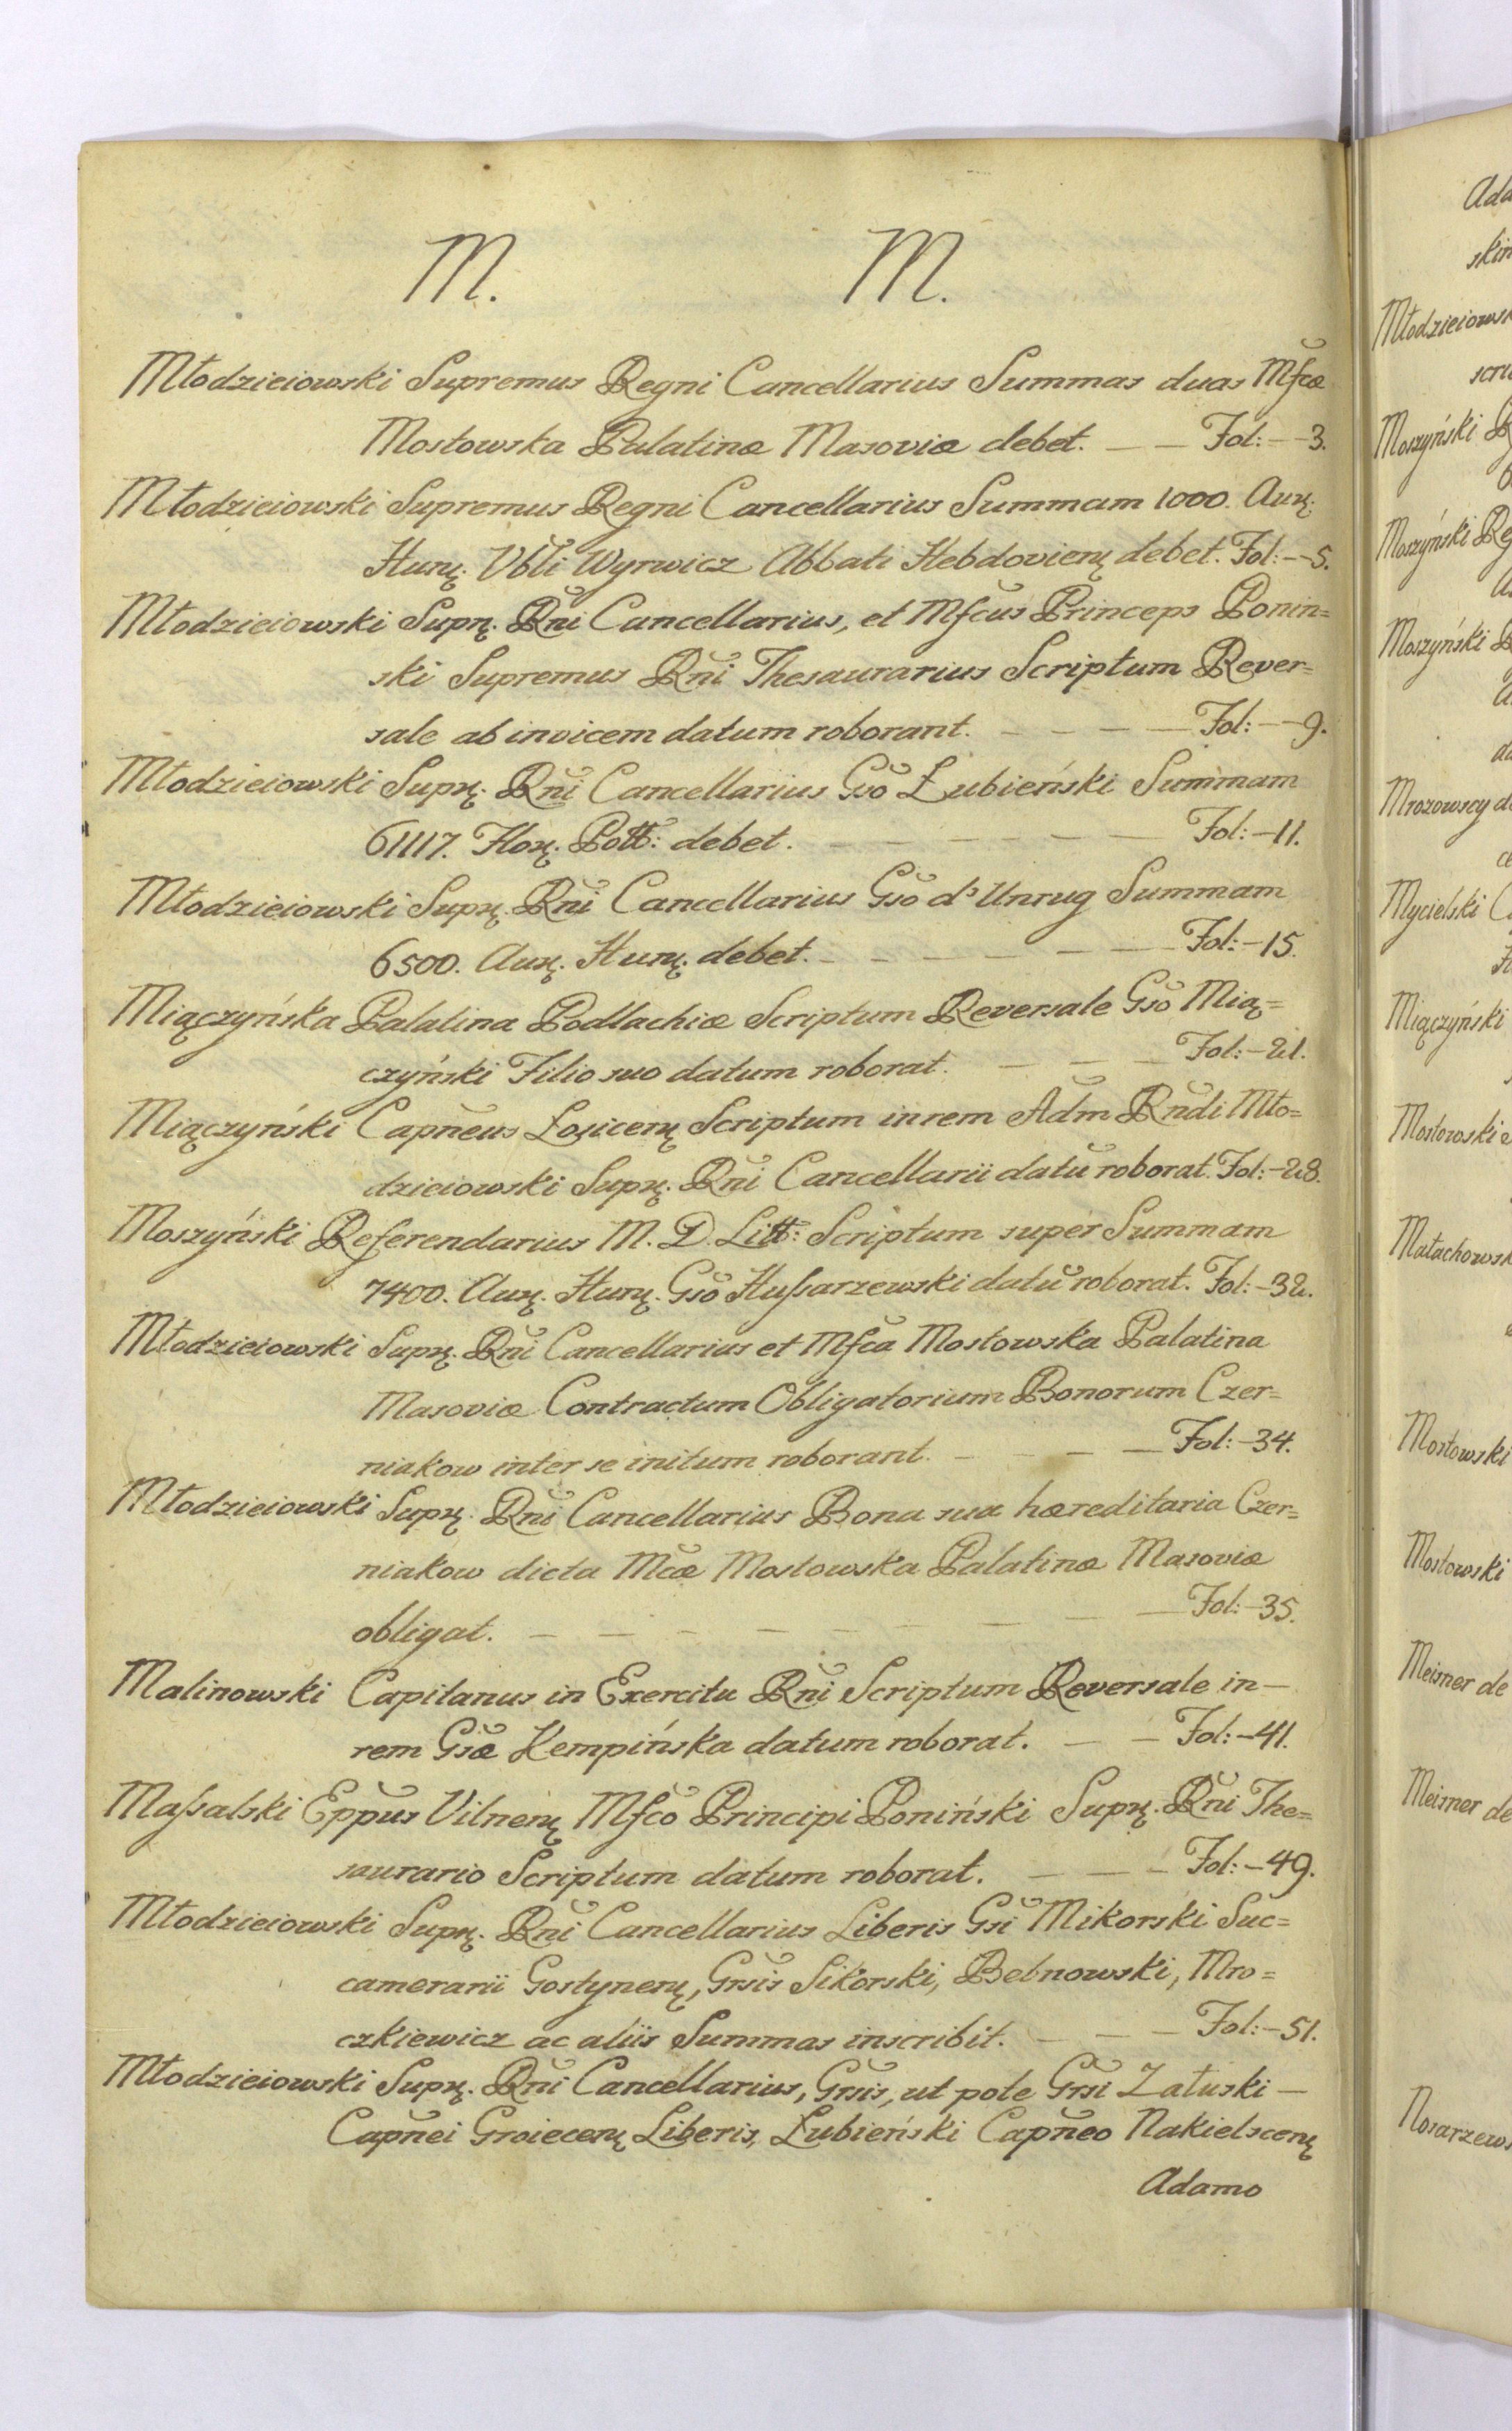 M. M.
Młodzieiowski Supremus Regni Cancellarius Summas duas Mfcæ
Mostowska Palatinæ Masoviæ debet. — — Fol: — 3.
Młodzieiowski Supremus Regni Cancellarius Summam 1000. Aur̨.
Hunr̨. Vbli Wyrwicz Abbati Hebdovienr̨ debet. Fol: — 5.
Młodzieiowski Supr̨. Rni Cancellarius, et Mfcus Princeps Ponin=
ski Supremus Rni Thesaurarius Scriptum Rever=
sale ab invicem datum roborant. — — — Fol: — 9.
Młodzieiowski Supr̨. Rni Cancellarius Gso Łubieński Summam
61117. Flor̨. Poltt: debet. — — — — — Fol: — 11.
Młodzieiowski Supr̨. Rni Cancellarius Gso d'Unrug Summam
6500. Aur̨. Hunr̨. debet. — — — — — Fol: — 15.
Miączyńska Palatina Podlachiæ Scriptum Reversale Gso Mią=
czyński Filio suo datum roborat. — — — Fol: — 21.
Miączyński Capneus Łosicenr̨ Scriptum in rem Adm Rndi Mło=
dzieiowski Supr̨. Rni Cancellarii datu roborat. Fol: — 28.
Moszyński Referendarius M. D. Litt: Scriptum super Summam
7400. Aur̨. Hunr̨. Gso Hussarzewski datu roborat. Fol: — 32.
Młodzieiowski Supr̨. Rni Cancellarius et Mfca Mostowska Palatina
Masoviæ Contractum Obligatorium Bonorum Czer=
niakow inter se initum roborant. — — — Fol: — 34.
Młodzieiowski Supr̨. Rni Cancellarius Bona sua hæreditaria Czer=
niakow dicta Mcæ Mostowska Palatinæ Masoviæ
obligat. — — — — — — — — Fol: — 35.
Malinowski Capitanus in Exercitu Rni Scriptum Reversale in —
rem Gsæ Kempińska datum roborat. — — Fol: — 41.
Massalski Eppus Vilnenr̨ Mfco Principi Poniński Supr̨. Rni The=
saurario Scriptum datum roborat. — — — Fol: — 49.
Młodzieiowski Supr̨. Rni Cancellarius Liberis Gsi Mikorski Suc=
camerarii Gostynenr̨, Grsis Sikorski, Bebnowski, Mro=
czkiewicz ac aliis Summas inscribit. — — — Fol: — 51.
Młodzieiowski Supr̨. Rni Cancellarius, Grsis, ut pote Grsi Załuski —
Capnei Groiecenr̨ Liberis, Łubieński Capneo Nakielscenr̨
Adamo
Ada
skin
Młodzieiowsk
scri
Moszyński
Moszyński Re
Moszyński
Mrozowscy de
Mycielski
Miączyński
Mostowski e
Małachowsk
Mostowski
Mostowski
Meisner de
Meisner de
Nosarzews